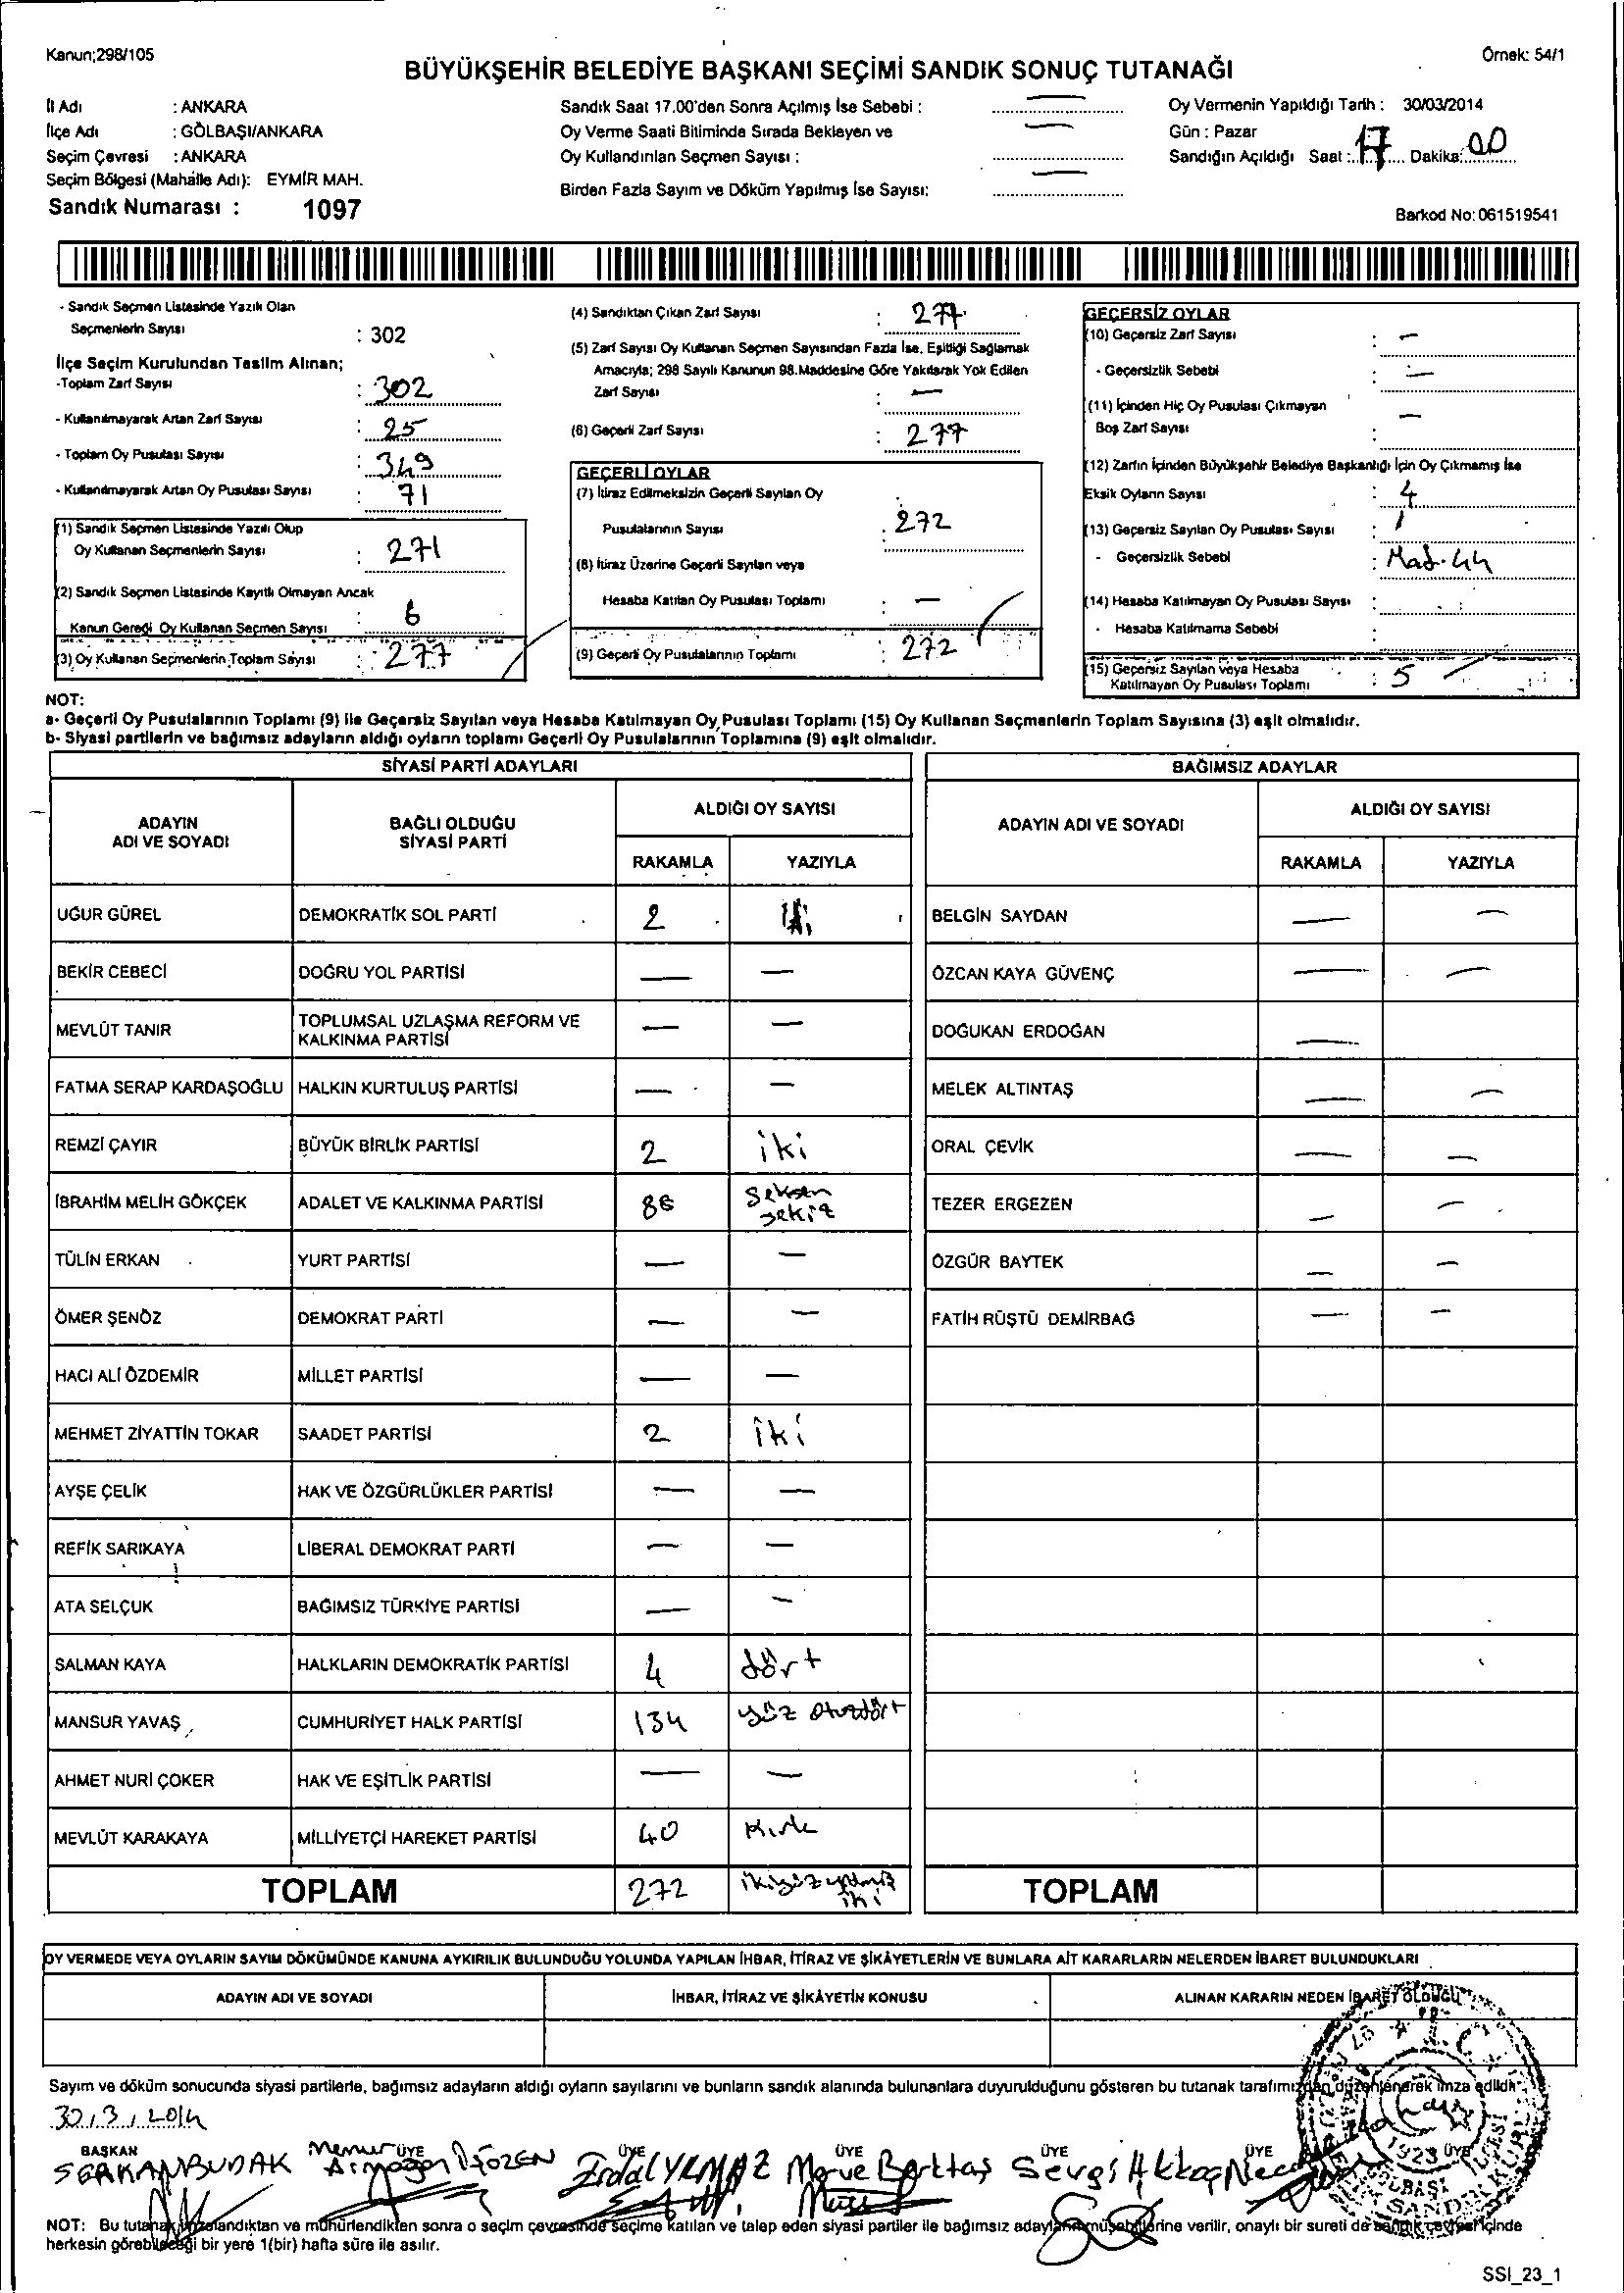 Kanun;298/105
Örnek: 54/1
BÜYÜKŞEHİR BELEDİYE BAŞKANI SEÇİMİ SANDIK SONUÇ TUTANAĞI
İl Adı : ANKARA
İlçe Adı : GÖLBAŞI/ANKARA
Seçim Çevresi : ANKARA
Seçim Bölgesi (Mahalle Adı): EYMİR MAH.
Sandık Numarası : 1097
Sandık Saat 17.00'den Sonra Açılmış İse Sebebi : —
Oy Verme Saati Bitiminde Sırada Bekleyen ve
Oy Kullandırılan Seçmen Sayısı : —
Birden Fazla Sayım ve Döküm Yapılmış İse Sayısı: —
Oy Vermenin Yapıldığı Tarih : 30/03/2014
Gün : Pazar
Sandığın Açıldığı Saat : 17 Dakika: 00
Barkod No: 061519541
- Sandık Seçmen Listesinde Yazılı Olan
Seçmenlerin Sayısı : 302
İlçe Seçim Kurulundan Teslim Alınan;
-Toplam Zarf Sayısı : 302
- Kullanılmayarak Artan Zarf Sayısı : 25
- Toplam Oy Pusulası Sayısı : 349
- Kullanılmayarak Artan Oy Pusulası Sayısı : 71
(1) Sandık Seçmen Listesinde Yazılı Olup
Oy Kullanan Seçmenlerin Sayısı : 271
(2) Sandık Seçmen Listesinde Kayıtlı Olmayan Ancak
Kanun Gereği Oy Kullanan Seçmen Sayısı : 6
(3) Oy Kullanan Seçmenlerin Toplam Sayısı : 277
(4) Sandıktan Çıkan Zarf Sayısı : 277
(5) Zarf Sayısı Oy Kullanan Seçmen Sayısından Fazla İse, Eşitliği Sağlamak
Amacıyla; 298 Sayılı Kanunun 98.Maddesine Göre Yakılarak Yok Edilen
Zarf Sayısı : —
(6) Geçerli Zarf Sayısı : 277
GEÇERLİ OYLAR
(7) İtiraz Edilmeksizin Geçerli Sayılan Oy
Pusulalarının Sayısı : 272
(8) İtiraz Üzerine Geçerli Sayılan veya
Hesaba Katılan Oy Pusulası Toplamı : —
(9) Geçerli Oy Pusulalarının Toplamı : 272
GEÇERSİZ OYLAR
(10) Geçersiz Zarf Sayısı : —
- Geçersizlik Sebebi : —
(11) İçinden Hiç Oy Pusulası Çıkmayan
Boş Zarf Sayısı : —
(12) Zarfın İçinden Büyükşehir Belediye Başkanlığı İçin Oy Çıkmamış İse
Eksik Oyların Sayısı : 4
(13) Geçersiz Sayılan Oy Pusulası Sayısı : 1
- Geçersizlik Sebebi : Mad. 44
(14) Hesaba Katılmayan Oy Pusulası Sayısı :
- Hesaba Katılmama Sebebi :
(15) Geçersiz Sayılan veya Hesaba
Katılmayan Oy Pusulası Toplamı : 5
NOT:
a- Geçerli Oy Pusulalarının Toplamı (9) ile Geçersiz Sayılan veya Hesaba Katılmayan Oy Pusulası Toplamı (15) Oy Kullanan Seçmenlerin Toplam Sayısına (3) eşit olmalıdır.
b- Siyasi partilerin ve bağımsız adayların aldığı oyların toplamı Geçerli Oy Pusulalarının Toplamına (9) eşit olmalıdır.
SİYASİ PARTİ ADAYLARI
ADAYIN ADI VE SOYADI BAĞLI OLDUĞU SİYASİ PARTİ ALDIĞI OY SAYISI
RAKAMLA YAZIYLA
UĞUR GÜREL DEMOKRATİK SOL PARTİ 2
BEKİR CEBECİ DOĞRU YOL PARTİSİ — —
MEVLÜT TANIR TOPLUMSAL UZLAŞMA REFORM VE KALKINMA PARTİSİ — —
FATMA SERAP KARDAŞOĞLU HALKIN KURTULUŞ PARTİSİ — —
REMZİ ÇAYIR BÜYÜK BİRLİK PARTİSİ 2 iki
İBRAHİM MELİH GÖKÇEK ADALET VE KALKINMA PARTİSİ 88 Seksen sekiz
TÜLİN ERKAN YURT PARTİSİ — —
ÖMER ŞENÖZ DEMOKRAT PARTİ — —
HACI ALİ ÖZDEMİR MİLLET PARTİSİ — —
MEHMET ZİYATTİN TOKAR SAADET PARTİSİ 2 iki
AYŞE ÇELİK HAK VE ÖZGÜRLÜKLER PARTİSİ — —
REFİK SARIKAYA LİBERAL DEMOKRAT PARTİ — —
ATA SELÇUK BAĞIMSIZ TÜRKİYE PARTİSİ — —
SALMAN KAYA HALKLARIN DEMOKRATİK PARTİSİ 4 dört
MANSUR YAVAŞ CUMHURİYET HALK PARTİSİ 134 yüz otuzdört
AHMET NURİ ÇOKER HAK VE EŞİTLİK PARTİSİ — —
MEVLÜT KARAKAYA MİLLİYETÇİ HAREKET PARTİSİ 40 Kırk
TOPLAM 272 ikiyüz yetmiş iki
BAĞIMSIZ ADAYLAR
ADAYIN ADI VE SOYADI ALDIĞI OY SAYISI
RAKAMLA YAZIYLA
BELGİN SAYDAN — —
ÖZCAN KAYA GÜVENÇ — —
DOĞUKAN ERDOĞAN —
MELEK ALTINTAŞ — —
ORAL ÇEVİK — —
TEZER ERGEZEN — —
ÖZGÜR BAYTEK — —
FATİH RÜŞTÜ DEMİRBAĞ — —
TOPLAM
OY VERMEDE VEYA OYLARIN SAYIM DÖKÜMÜNDE KANUNA AYKIRILIK BULUNDUĞU YOLUNDA YAPILAN İHBAR, İTİRAZ VE ŞİKÂYETLERİN VE BUNLARA AİT KARARLARIN NELERDEN İBARET BULUNDUKLARI
ADAYIN ADI VE SOYADI İHBAR, İTİRAZ VE ŞİKÂYETİN KONUSU ALINAN KARARIN NEDEN İBARET OLDUĞU
Sayım ve döküm sonucunda siyasi partilerle, bağımsız adayların aldığı oyların sayılarını ve bunların sandık alanında bulunanlara duyurulduğunu gösteren bu tutanak tarafımızdan düzenlenerek imza edildi.
30/3/2014
BAŞKAN ÜYE ÜYE ÜYE ÜYE ÜYE ÜYE
SERKAN BUDAK Memur Armağan Erdal YILMAZ Merve Berktaş Sevgi Akkoç
1923
NOT: Bu tutanak imzalandıktan ve mühürlendikten sonra o seçim çevresinde seçime katılan ve talep eden siyasi partiler ile bağımsız adayların müşahitlerine verilir, onaylı bir sureti de sandık çevresi içinde
herkesin görebileceği bir yere 1(bir) hafta süre ile asılır.
SSI_23_1